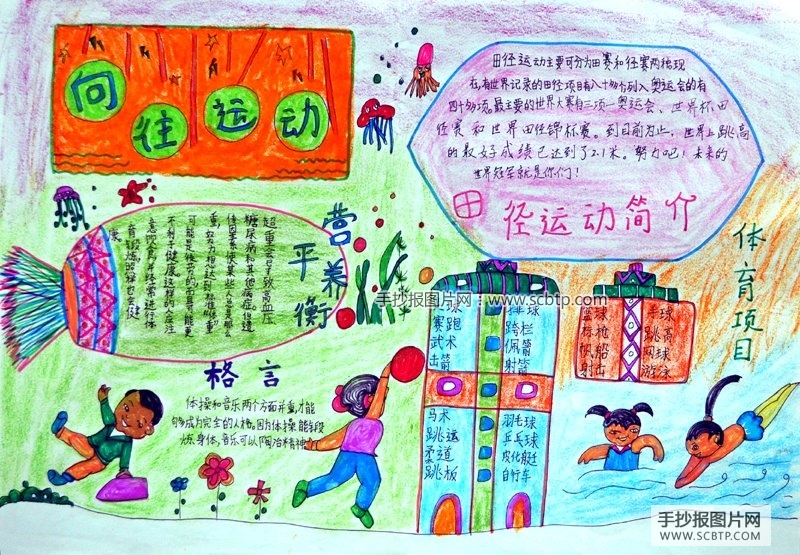 向往运动
田径运动主要可分为田赛和径赛两种现
在,有世界记录的田径项目有八十多个列入奥运会的有
四十多项。最主要的世界大赛有三项一奥运会、世界杯田
径赛和世界田径锦标赛。到目前为止,世界上跳高
的最好成绩已达到了2.1米。努力吧!未来的
世界冠军就是你们!
田径运动简介
营养
平衡
超重会导致高血压
糖尿病和其他病症。但遗
传因素使某些人总是那么
重,努力想达到标准"体重"
可能是徒劳的而且可能更
不利于健康这样的人应注
意饮食并持续进行体
育锻炼照样也会健
康
手抄报图片网:www.scbtp.com
体育项目
赛跑 跨栏
武术 佩箭
击箭 射箭
马术 羽毛球
跳运 乒乓球
柔道 皮化艇
跳板 自行车
篮球 手球
标枪 跳高
帆船 网球
射击 游泳
格言
体操和音乐两个方面并重,才能
够成为完全的人格。因为体操能锻
炼身体,音乐可以陶冶精神
手抄报图片网
WWW.SCBTP.COM